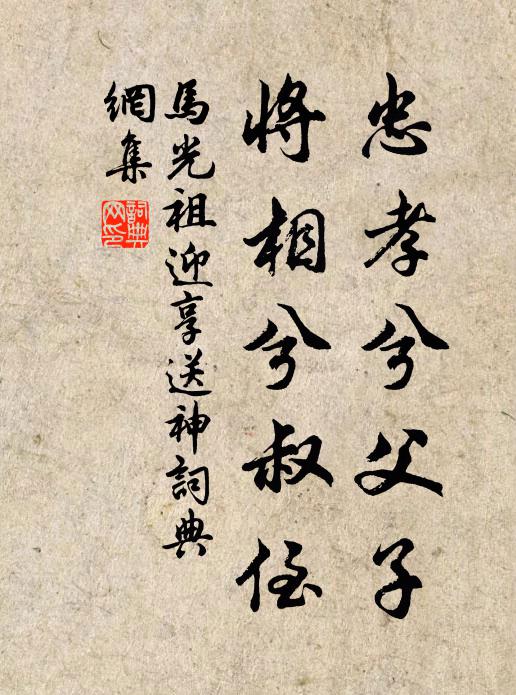 忠孝兮父子
將相兮叔侄
馬光祖迎享送神詞典
網集
詞典網印